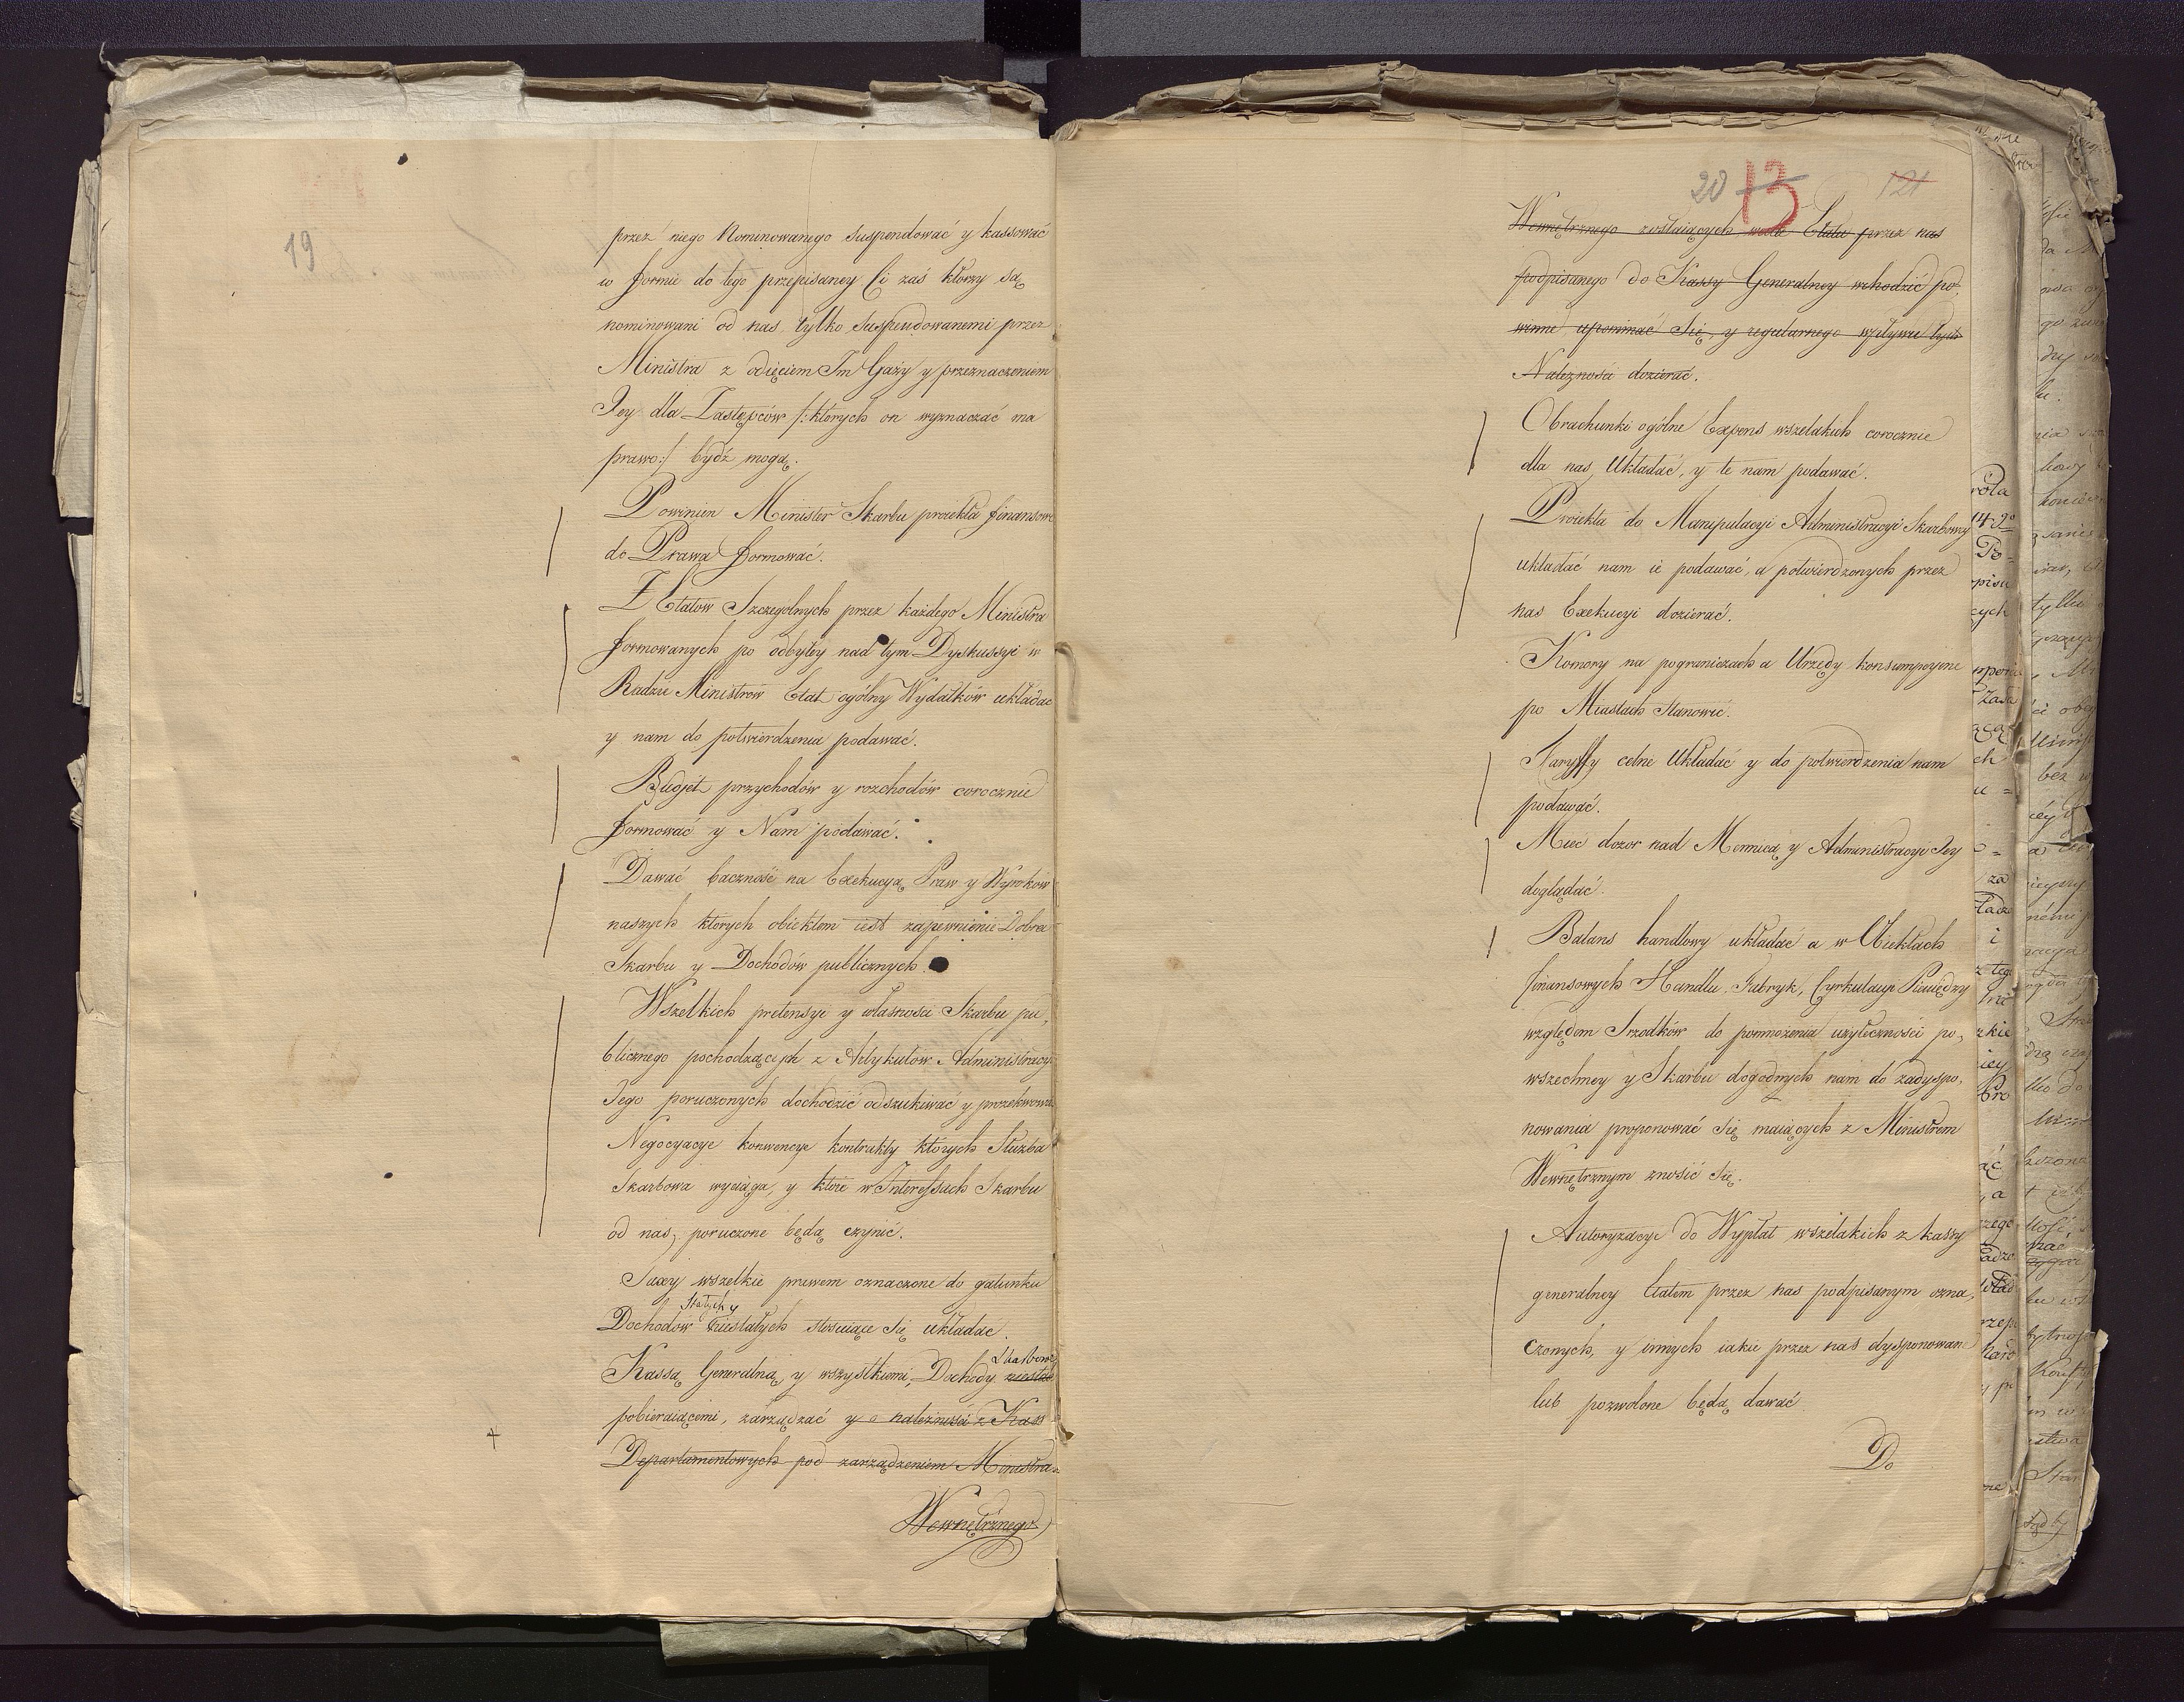 19
przez niego Nominowanego Suspendować y kassować
w formie do tego przepisaney Ci zaś którzy są
nominowani od nas tylko Suspendowanemi przez
Ministra z odięciem Im Gaży y przeznaczeniem
Jey dla Zastępców /: których on wyznaczać ma
prawo:/ bydź mogą.
Powinien Minister Skarbu proiekta finansowe
do Prawa formować.
Z Etatow Szczególnych przez każdego Ministra
formowanych po odbytey nad tym Dyskussyi w
Radzie Ministrów Etat ogólny Wydatków układać
y nam do potwierdzenia podawać.
Budjet przychodów y rozchodów corocznie
formować y Nam podawać.
Dawać baczność na Exekucyą Praw y Wyroków
naszych których obiektem iest zapewnienie Dobra
Skarbu y Dochodów publicznych.
Wszelkich pretensyi y własności Skarbu pu,
blicznego pochodzących z Artykułow Administracyi
Jego poruczonych dochodzić odszukiwać y
Negocyacye konwencye kontrakty których Służba
Skarbowa wyciąga, y które w Interessach Skarbu
od nas, poruczone będą czynić.
Taxy wszelkie prawem oznaczone do gatunku
Stałych y
Dochodów Niestałych stosuiące się układać.
Skarbowe
Kassą Generalną y wszystkiemi, Dochody niestałe
pobieraiącemi, zarządzać y o należności z Kass
+ Departamentowych pod zarządzeniem Ministra
Wewnętrznego
20 13 121
Wewnętrznego zostaiących wedle Etatu przez nas
podpisanego do Kassy Generalney wchodzić po,
winne upominać Się, y regularnego wpływu tych
Należności dozierać.
Obrachunki ogólne Expens wszelakich corocznie
dla nas Układać, y te nam podawać.
Proiekta do Manipulacyi Administracyi Skarbowey
układać nam ie podawać, a potwierdzonych przez
nas Exekucyi dozierać.
Komory na pograniczach a Urzędy konsumpcyine
po Miastach Stanowić.
Taryffy celne Układać y do potwierdzenia nam
podawać.
Mieć dozor nad Mennicą y Administracye Jey
doglądać.
Balans handlowy układać a w Obiektach
finansowych Handlu, Fabryk, Cyrkulacyi Pieniędzy
względem Srzodków do pomnożenia użyteczności po,
wszechney y Skarbu dogodnych nam do zadyspo,
nowania proponować się maiących z Ministrem
Wewnętrznym znosić się.
Autoryzacye do Wypłat wszelakich z kassy
generalney Etatem przez nas podpisanym ozna,
czonych, y innych iakie przez nas dysponowane
lub pozwolone będą dawać
Do